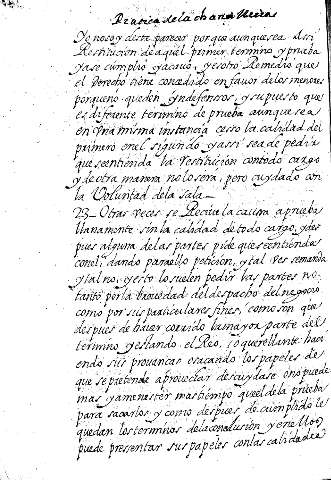 Pratica de la chanzilleria
Yo no soy deste parecer porque aunque sea assi
Restitucion de aquel primer termino y prueba
ya se cumplio y acavo, y es otro Remedio que
el derecho tiene concedido en favor de los menores
porque no queden Yndefensos, y supuesto que
es diferente termino de prueba aunque sea
en Vna misma instancia cesso la calidad del
primero en el segundo y assi se a de pedir
que se entienda la restitucion con todo cargo
y de otra manera no lo sera, pero cuydado con
la Voluntad de la sala
23 Otras veces se Reciue la causa a prueba
llanamente sin la calidad de todo cargo, y des
pues alguna de las partes pide que se entienda
con el, dando para ello peticion, y tal ves se manda
y tal no, y esto lo suelen pedir las partes no
tanto por la brevedad del despacho del negocio
como por sus particulares fines, como son que
despues de haver corrido la mayor parte del
termino y estando el Reo, o querellante haci
endo sus provanzas o sacando los papeles de
que se pretende aprovechar descuydase o no puede
mas y a menester mas tiempo que el de la prueba
para sacarlos y como despues de cumplido le
quedan los terminos de la conclusion y en ellos
puede presentar sus papeles con la calidad de